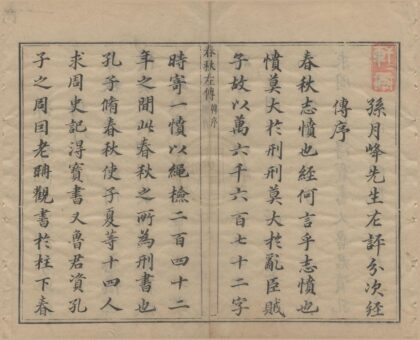 孫月峰先生左評分次經
傳序
春秋志憤也經何言乎志憤也
憤莫大於刑刑莫大於亂臣賊
子故以萬六千六百七十二字
春秋左傳 韓序
時寄一憤以繩檢二百四十二
年之間此春秋之所為刑書也
孔子脩春秋使子夏等十四人
求周史記得寶書又魯君資孔
子之周因老聃觀書於柱下春